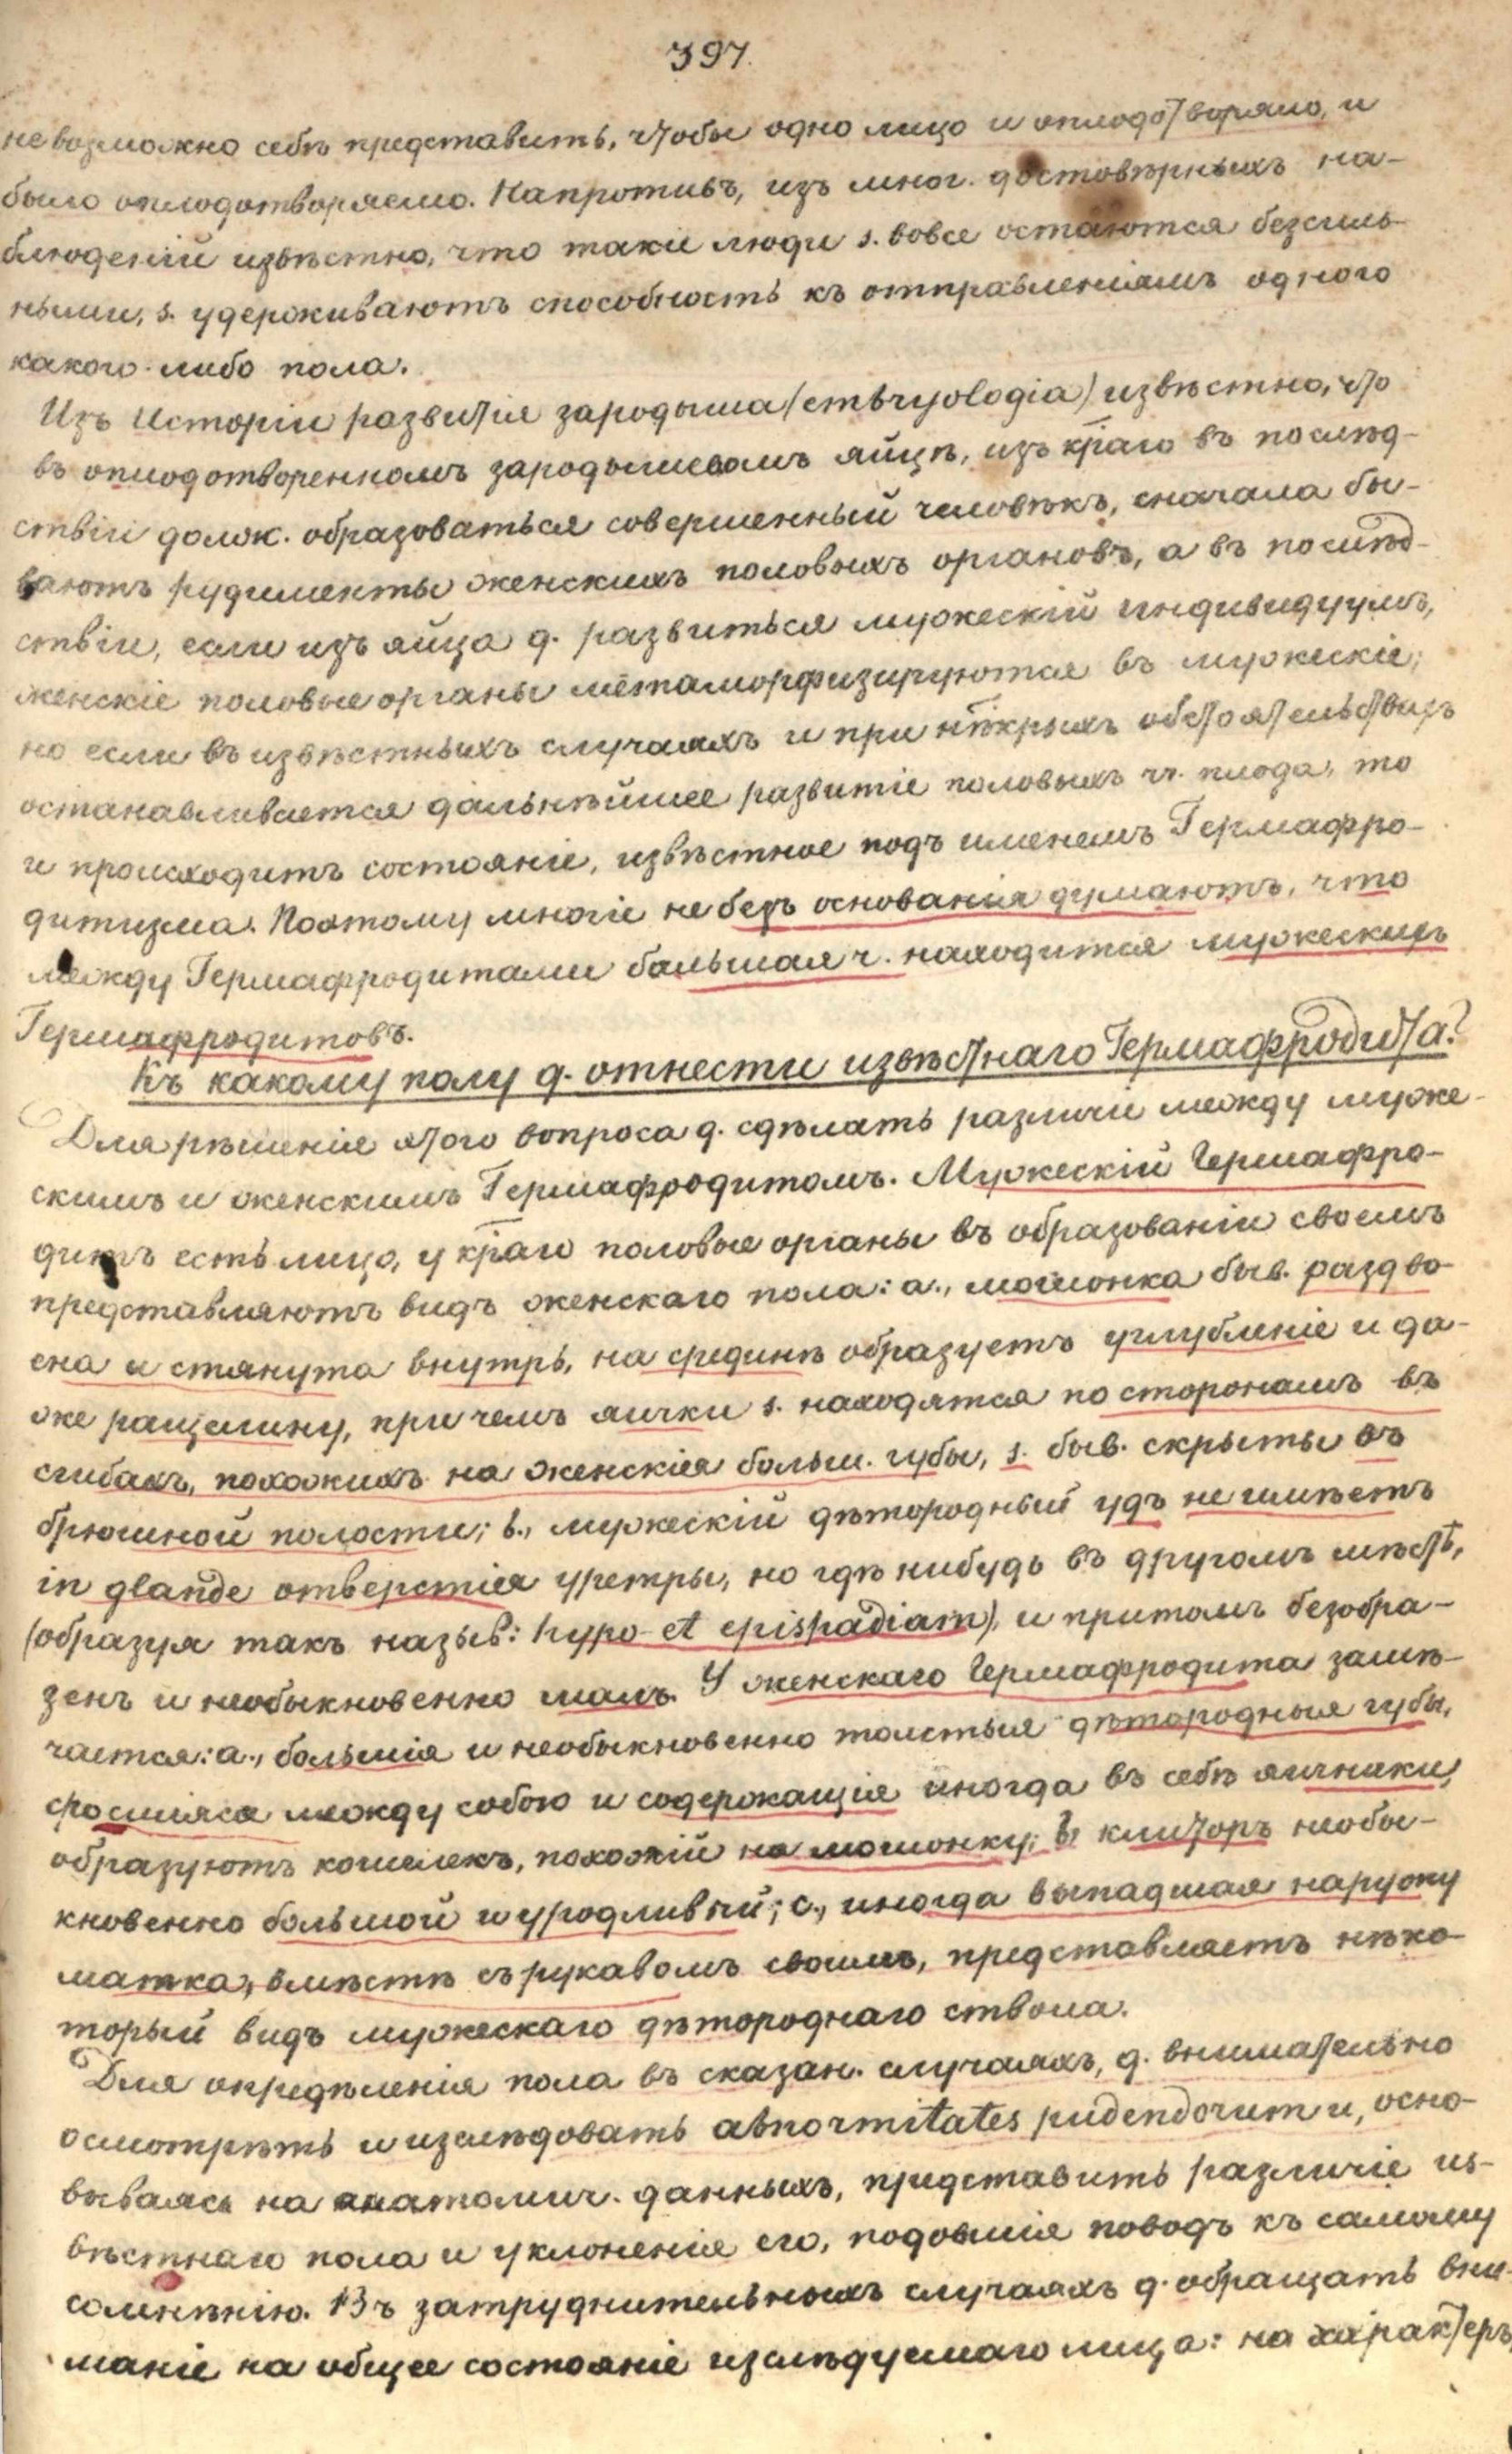 397.
невозможно себѣ представить, чтобы одно лицо и оплодотворяло, и
было оплодотворяемо. Напротивъ, изъ мног. достовѣрныхъ на-
блюденій извѣстно, что такіе люди s. вовсе остаются безсиль-
ными, s. удерживаютъ способность къ отправленіямъ одного
какого-либо пола.
Изъ Исторіи развитія зародыша (embryologia) извѣстно, что
въ оплодотворенномъ зародышевомъ яйцѣ, изъ краго въ послѣд-
ствіи долж. образоваться совершенный человѣкъ, сначала бы-
ваютъ рудименты женскихъ половыхъ органовъ, а въ послѣд-
ствіи, если изъ яйца д. развиться мужескій индивидуумъ,
женскіе половые органы метаморфизируются въ мужескіе;
но если въ извѣстныхъ случаяхъ и при нѣкрыхъ обстоятельствахъ
останавливается дальнѣйшее развитіе половыхъ чч. плода, то
и происходитъ состояніе, извѣстное подъ именемъ Гермафро-
дитизма. Поэтому многіе не безъ основанія думаютъ, что
между Гермафродитами большая ч. находится мужескихъ
Гермафродитовъ.
Къ какому полу д. отнести извѣстнаго Гермафродита?
Для рѣшенія этого вопроса д. сдѣлать различіе между муже-
скимъ и женскимъ Гермафродитомъ. Мужескій Гермафро-
дитъ есть лицо, у краго половые органы въ образованіи своемъ
представляютъ видъ женскаго пола: a., мошонка быв. раздво-
ена и стянута внутрь, на срединѣ образуетъ углубленіе и да-
же ращелину, при чемъ яички s. находятся по сторонамъ въ
сгибахъ, похожихъ на женскія больш. губы, s. быв. скрыты въ
брюшной полости; b., мужескій дѣтородный удъ не имѣетъ
in glande отверстія уретры, но гдѣ нибудь въ другомъ мѣстѣ,
(образуя такъ назыв: hypo- et epispadiam), и притомъ безобра-
зенъ и необыкновенно малъ. У женскаго Гермафродита замѣ-
чается: a., большія и необыкновенно толстыя дѣтородныя губы,
сросшіяся между собою и содержащія иногда въ себѣ яичники,
образуютъ кошелекъ, похожій на мошонку; b., клиторъ необы-
кновенно большой и уродливый; c., иногда выпадшая наружу
матка, вмѣстѣ съ рукавомъ своимъ, представляетъ нѣко-
торый видъ мужескаго дѣтороднаго ствола.
Для опредѣленія пола въ сказан. случаяхъ, д. внимательно
осмотрѣть и изслѣдовать abnormitates pudendorum и, осно-
вываясь на анатомич. данныхъ, представить различіе из-
вѣстнаго пола и уклоненія его, подовшія поводъ къ самому
сомнѣнію. Въ затруднительныхъ случаяхъ д. обращать вни-
маніе на общее состояніе изслѣдуемаго лица: на характеръ